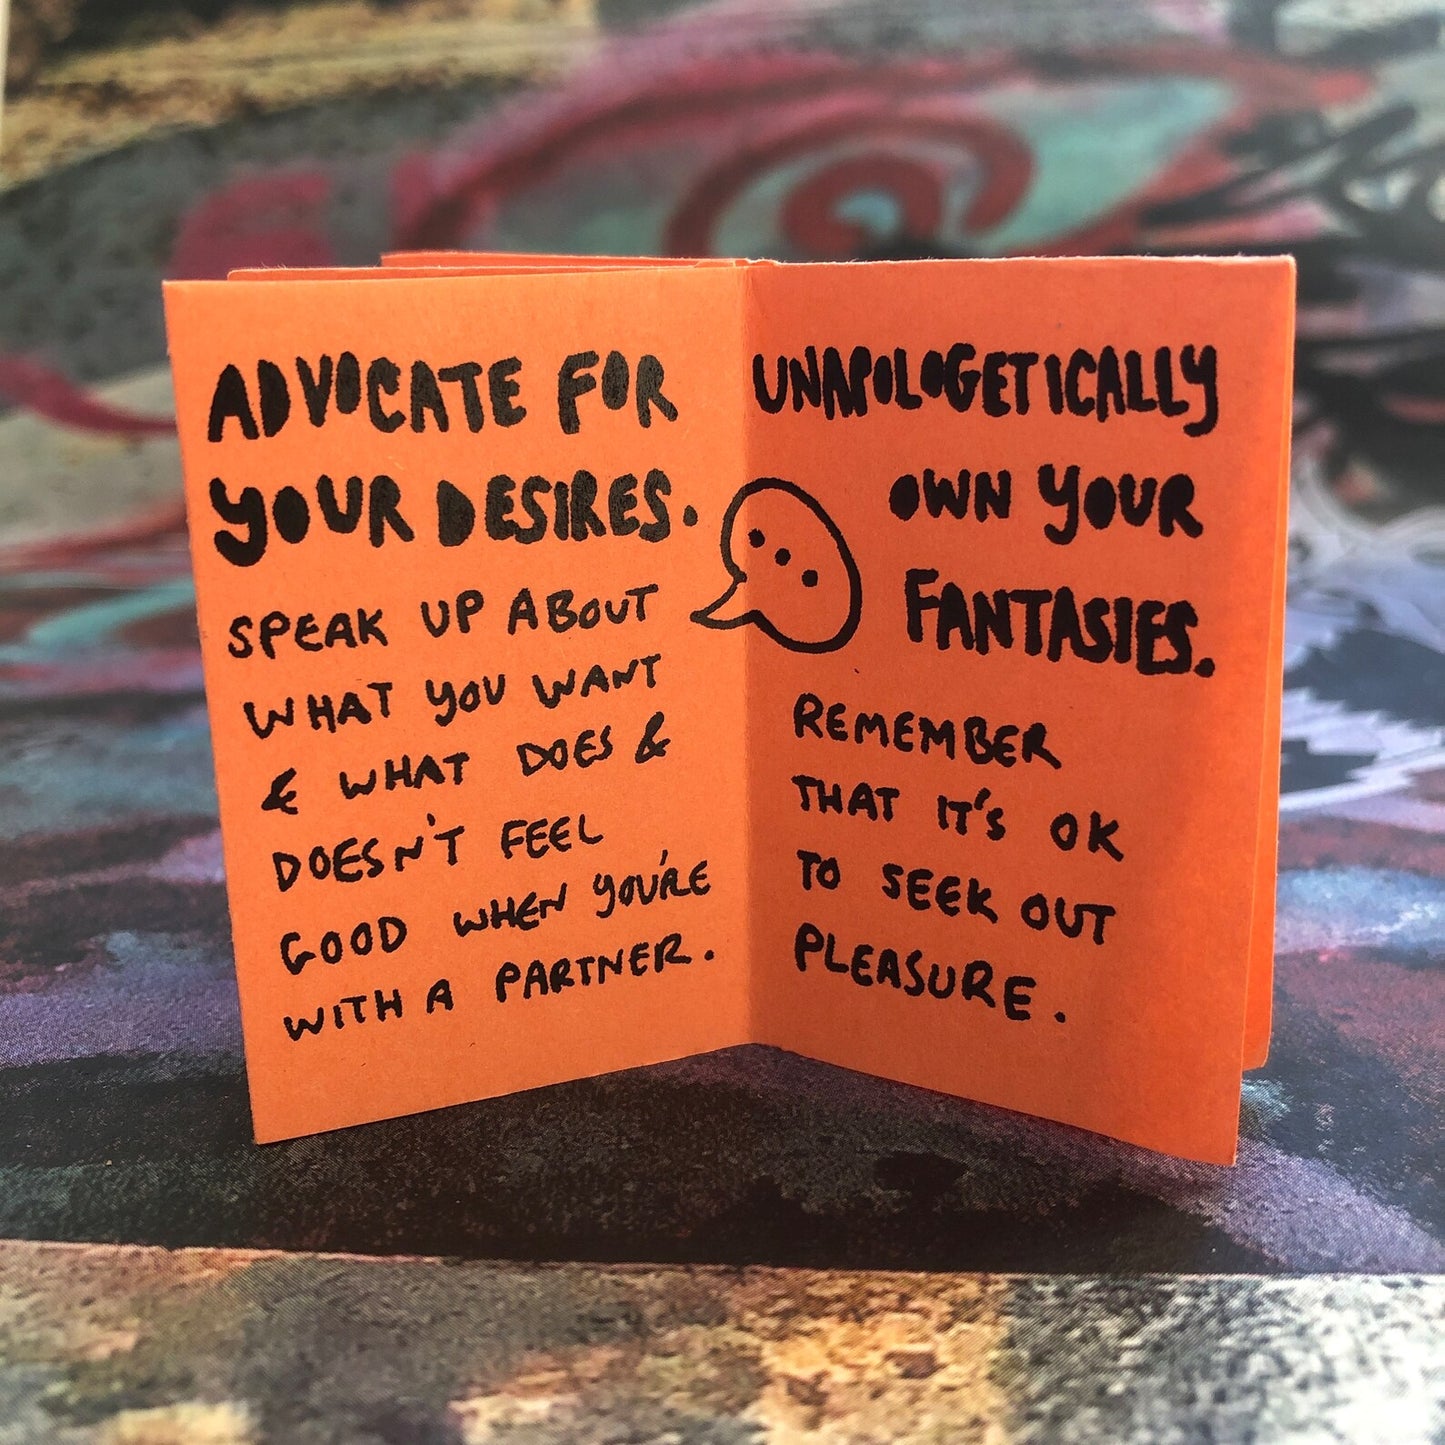 ADVOCATE FOR
YOUR DESIRES.
SPEAK UP ABOUT
WHAT YOU WANT
& WHAT DOES &
DOESN'T FEEL
GOOD WHEN YOU'RE
WITH A PARTNER.
UNAPOLOGETICALLY
OWN YOUR
FANTASIES.
REMEMBER
THAT IT'S OK
TO SEEK OUT
PLEASURE.